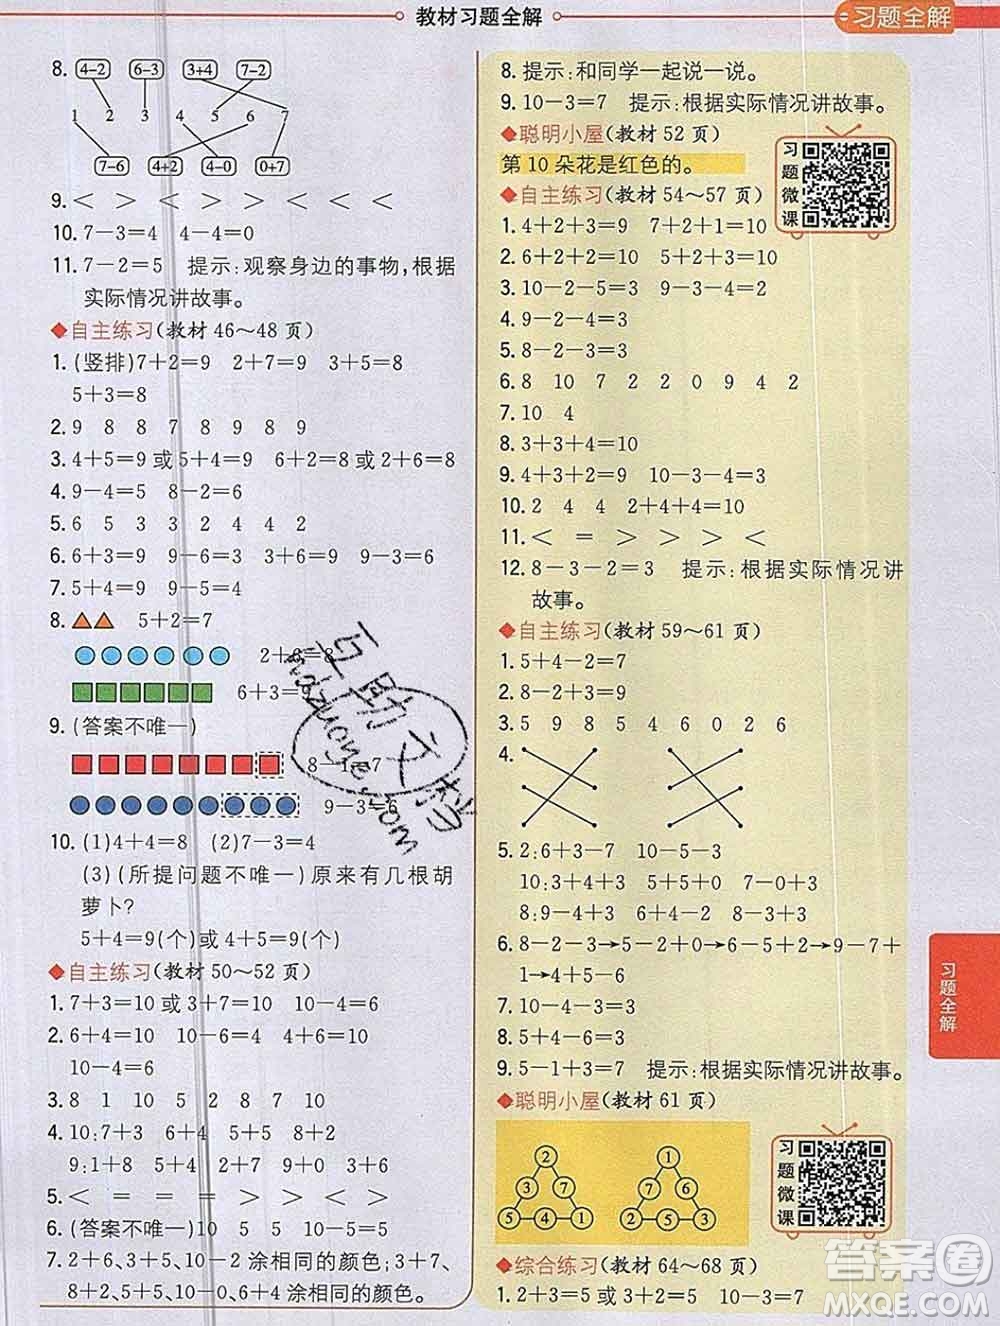 教材习题全解
习题全解
8. 4-2 6-3 3+4 7-2
1 2 3 4 5 6 7
7-6 4+2 4-0 0+7
9. < < < > > < < < <
10. 7-3=4 4-4=0
11. 7-2=5 提示:观察身边的事物,根据
实际情况讲故事。
◆自主练习(教材 46~48 页)
1. (竖排)7+2=9 2+7=9 3+5=8
5+3=8
2. 9 8 8 7 8 9 8 9
3. 4+5=9 或 5+4=9 6+2=8 或 2+6=8
4. 9-4=5 8-2=6
5. 6 5 3 3 2 4 4 2
6. 6+3=9 9-6=3 3+6=9 9-3=6
7. 5+4=9 9-5=4
8. 5+2=7
2+6=8
6+3=9
9. (答案不唯一)
8-1=7
9-3=6
10. (1)4+4=8 (2)7-3=4
(3)(所提问题不唯一)原来有几根胡
萝卜?
5+4=9(个)或 4+5=9(个)
◆自主练习(教材 50~52 页)
1. 7+3=10 或 3+7=10 10-4=6
2. 6+4=10 10-6=4 4+6=10
10-4=6
3. 8 1 10 5 2 8 7 10
4. 10:7+3 6+4 5+5 8+2
9:1+8 5+4 2+7 6+3
5. < = = = > > > <
6. (答案不唯一)10 5 5 10-5=5
7. 2+6,3+5,10-2 涂相同的颜色;3+7、
8+2、5+5、6+4 涂相同的颜色。
8. 提示:和同学一起说一说。
9. 10-3=7 提示:根据实际情况讲故事。
◆聪明小屋(教材 52 页)
第 10 朵花是红色的。
◆自主练习(教材 54~57 页)
习题微课
1. 4+2+3=9 7+2+1=10
2. 6+2+2=10 5+4+1=10
3. 10-2-5=3 9-2-3=4
4. 9-2-4=3
5. 8-2-3=3
6. 8 10 7 2 2 0 9 4 2
7. 10 4
8. 3+3+4=10
9. 4+3+2=9 10-3-4=3
10. 2 4 4 2+4+4=10
11. < = > > > <
12. 8-3-2=3 提示:根据实际情况讲
故事。
◆自主练习(教材 59~61 页)
1. 5+4-2=7
2. 8-2+3=9
3. 5 9 8 5 4 6 0 2 6
4.
5. 2:6+3-7 10-5-3
10:3+4+3 5+5+0 7-0+3
8:9-4+3 6+4-2 8-3+3
6. 8-2-3→5-2+0→6-5+2→9-7+
1→4+5-6
7. 10-4-3=3
8. 5+4-6=3
9. 5-1+3=7 提示:根据实际情况讲故事。
◆聪明小屋(教材 61 页)
2
3 7
5 4 1
1
7 4
2 3 5
习题微课
◆综合练习(教材 64~68 页)
1. 2+3=5 或 3+2=5 10-3=7
习题全解
互助文档
hdzuoye.com
答案圈
MXQE.COM